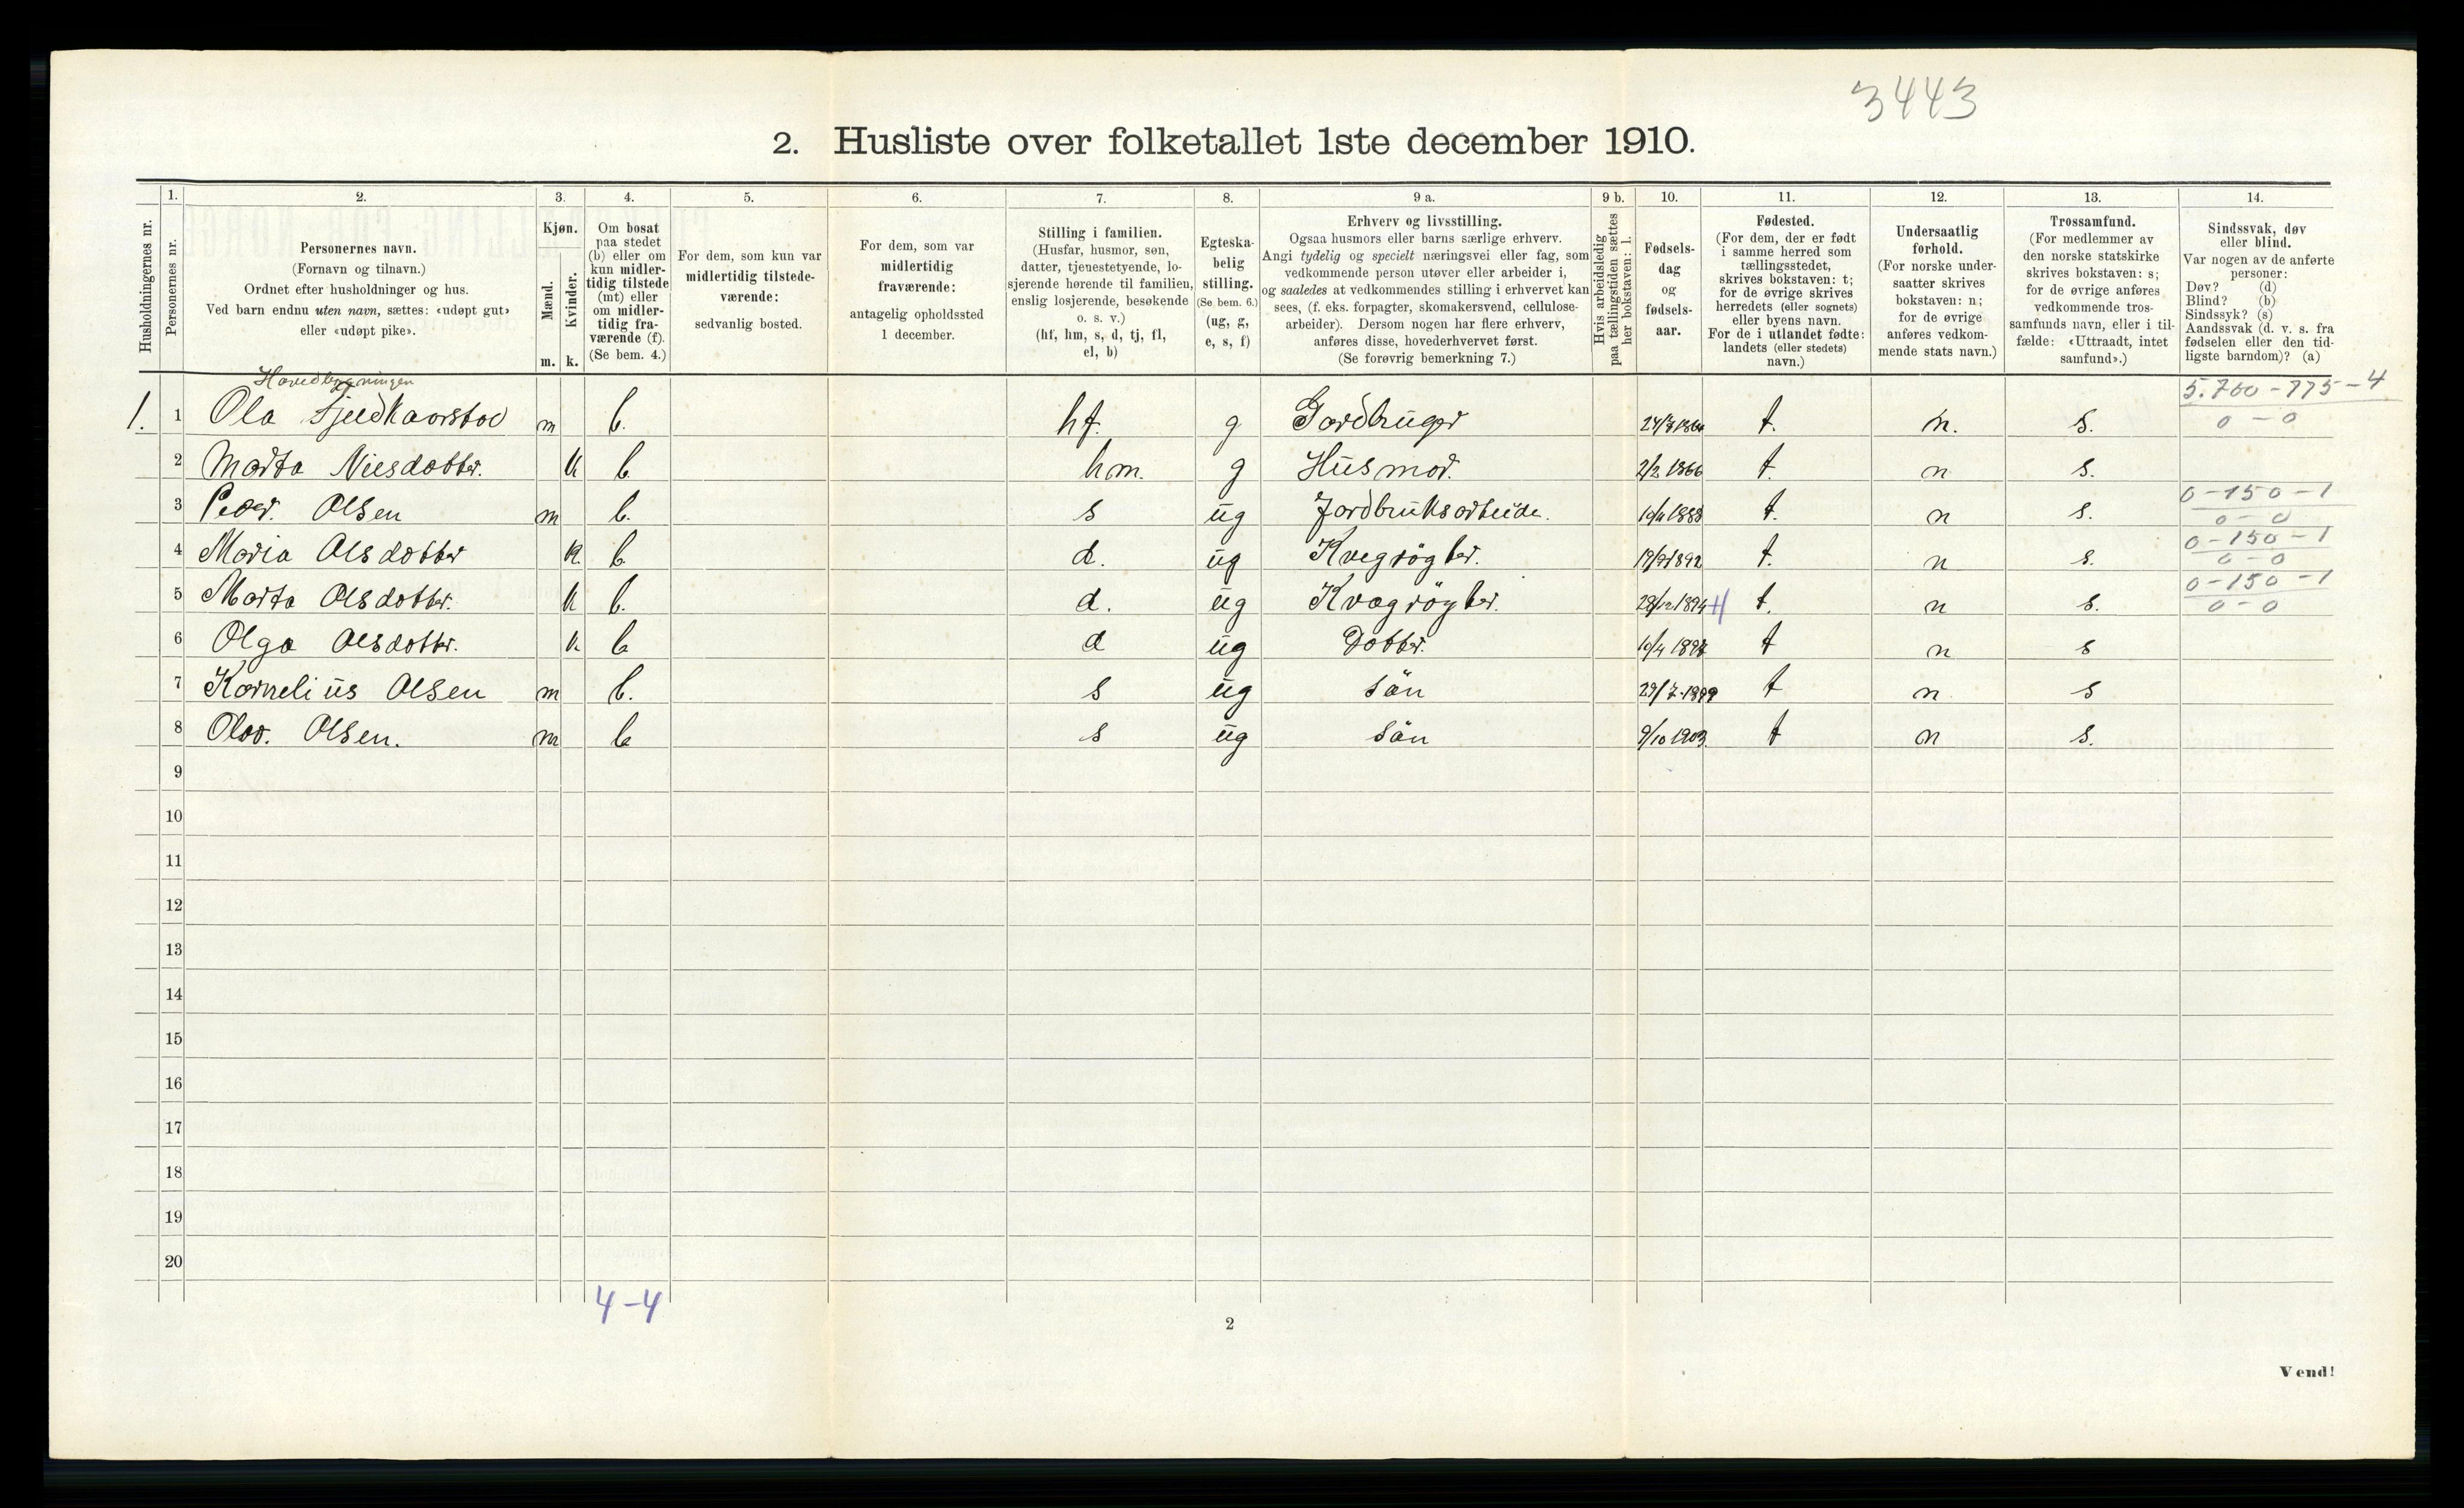 3443
2. Husliste over folketallet 1ste december 1910.
1. 2. 3. 4. 5. 6. 7. 8. 9 a. 9 b. 10. 11. 12. 13. 14.
Husholdningernes nr.
Personernes nr.
Personernes navn.
(Fornavn og tilnavn.)
Ordnet efter husholdninger og hus.
Ved barn endnu uten navn, sættes: «udøpt gut»
eller «udøpt pike».
Kjøn.
Mænd.
Kvinder.
m. k.
Om bosat
paa stedet
(b) eller om
kun midler-
tidig tilstede
(mt) eller
om midler-
tidig fra-
værende (f).
(Se bem. 4.)
For dem, som kun var
midlertidig tilstede-
værende:
sedvanlig bosted.
For dem, som var
midlertidig
fraværende:
antagelig opholdssted
1 december.
Stilling i familien.
(Husfar, husmor, søn,
datter, tjenestetyende, lo-
sjerende hørende til familien,
enslig losjerende, besøkende
o. s. v.)
(hf, hm, s, d, tj, fl,
el, b)
Egteska-
belig
stilling.
(Se bem. 6.)
(ug, g,
e, s, f)
Erhverv og livsstilling.
Ogsaa husmors eller barns særlige erhverv.
Angi tydelig og specielt næringsvei eller fag, som
vedkommende person utøver eller arbeider i,
og saaledes at vedkommendes stilling i erhvervet kan
sees, (f. eks. forpagter, skomakersvend, cellulose-
arbeider). Dersom nogen har flere erhverv,
anføres disse, hovederhvervet først.
(Se forøvrig bemerkning 7.)
Hvis arbeidsledig
paa tællingstiden sættes
her bokstaven: l.
Fødsels-
dag
og
fødsels-
aar.
Fødested.
(For dem, der er født
i samme herred som
tællingsstedet,
skrives bokstaven: t;
for de øvrige skrives
herredets (eller sognets)
eller byens navn.
For de i utlandet fødte:
landets (eller stedets)
navn.)
Undersaatlig
forhold.
(For norske under-
saatter skrives
bokstaven: n;
for de øvrige
anføres vedkom-
mende stats navn.)
Trossamfund.
(For medlemmer av
den norske statskirke
skrives bokstaven: s;
for de øvrige anføres
vedkommende tros-
samfunds navn, eller i til-
fælde: «Uttraadt, intet
samfund».)
Sindssvak, døv
eller blind.
Var nogen av de anførte
personer:
Døv? (d)
Blind? (b)
Sindssyk? (s)
Aandssvak (d. v. s. fra
fødselen eller den tid-
ligste barndom)? (a)
Hovedbygningen
5.700-775-4
1. 1 Ola m b. hf. g Gardbruger t. n. s. 0-0
2 Marta Nilsdotter. k b. hm. g Husmor. 2/2 1866 t. n s.
0-150-1
3 Peder. Olsen m b. s ug Jordbruksarbeide. t. n s. 0-0
0-150-1
4 Maria Olsdotter k. b. d. ug Kvegrögter. t. n s. 0-0
0-150-1
5 Marta Olsdotter. k b. d. ug Kvægrögter. 28/12 1894 t. n s. 0-0
6 Olga Olsdotter. k b d ug Dotter. t n s
7 Kornelius Olsen m b. s ug Sön 29/7-1899 t n. s
8 Olav. Olsen. m b s ug Sön 9/10 1903. t n s.
9
10
11
12
13
14
15
16
17
18
19
20
4-4
2
Vend!